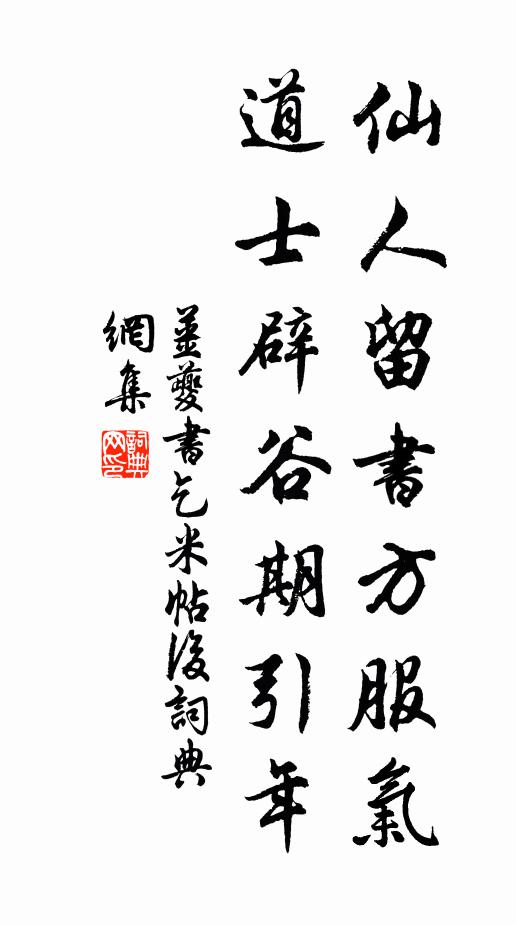 仙人留書方服氣
道士辟谷期引年
薑夔書乞米帖後詞典
網集
詞典網印